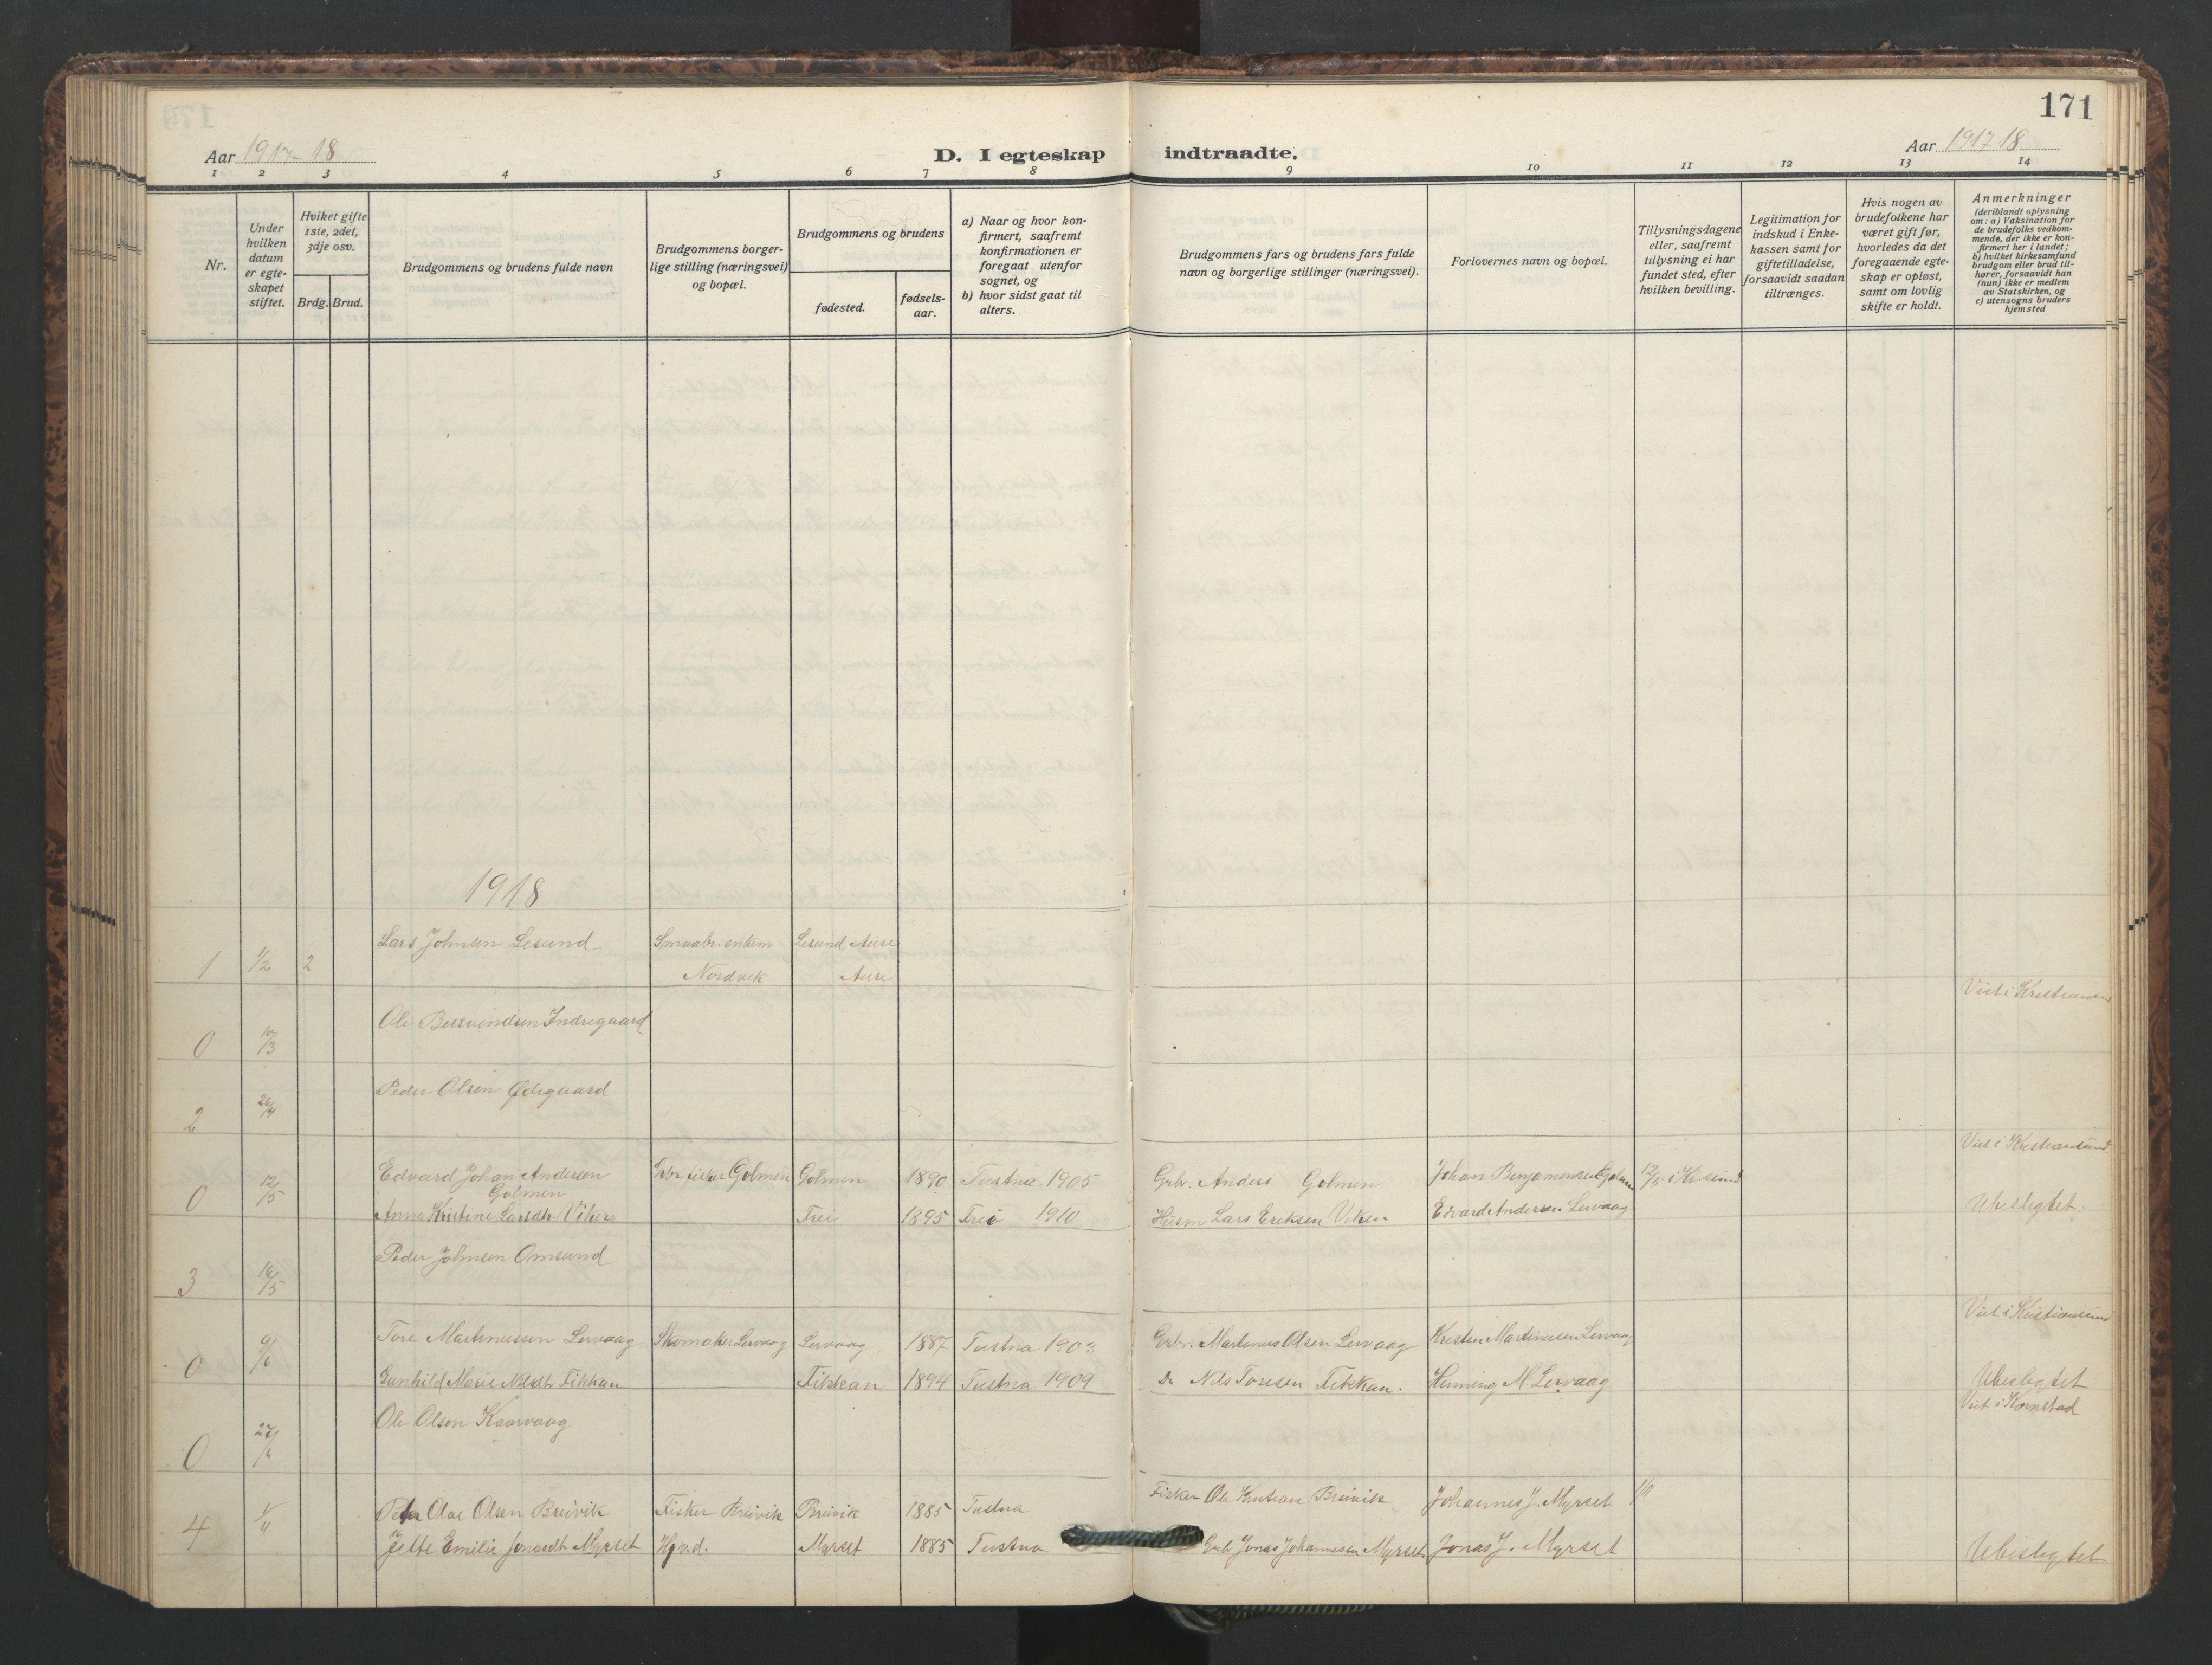 171
Aar 1917-18
D. I egteskap indtraadte.
Aar 1917 18
1 2 3 4 5 6 7 8 9 10 11 12 13 14
Nr.
Under
hvilken
datum
er egte-
skapet
stiftet.
Hviket gifte
1ste, 2det,
3dje osv.
Brdg. Brud.
Brudgommens og brudens fulde navn
Brudgommens borger-
lige stilling (næringsvei)
og bopæl.
Brudgommens og brudens
fødested.
fødsels-
aar.
a) Naar og hvor kon-
firmert, saafremt
konfirmationen er
foregaat utenfor
sognet, og
b) hvor sidst gaat til
alters.
Brudgommens fars og brudens fars fulde
navn og borgerlige stillinger (næringsvei).
Forlovernes navn og bopæl.
Tillysningsdagene
eller, saafremt
tillysning ei har
fundet sted, efter
hvilken bevilling.
Legitimation for
indskud i Enke-
kassen samt for
giftetilladelse,
forsaavidt saadan
tiltrænges.
Hvis nogen av
brudefolkene har
været gift før,
hvorledes da det
foregaaende egte-
skap er opløst,
samt om lovlig
skifte er holdt.
Anmerkninger
(deriblandt oplysning
om: a) Vaksination for
de brudefolks vedkom-
mende, der ikke er kon-
firmert her i landet;
b) hvilket kirkesamfund
brudgom eller brud til-
hører, forsaavidt han
(hun) ikke er medlem
av Statskirken, og
c) utensogns bruders
hjemsted
1918
Lars Johnsen Lesund Smaabr. enkem Lesund Aure
1 1/2 2 Nordvik Aure
Viet i Kristiansund
Ole Bersvendsen Indregaard
0 10/3
Peder Olsen Ødegaard
2 26/4
Viet i Kristiansund
Edvard Johan Andersen Gbr. fisker Golmen Golmen 1890 Tustna 1905 Gbr. Anders Golmen Johan Benjaminsen Golmen 12/5 i Kr.sund
0 12/5 Golmen
Anna Kristine Larsdtr. Viken Frei 1895 Frei 1910 Husm Lars Eriksen Viken Edvard Andersen Lervaag Ubeslegtet.
Peder Johnsen Omsund
3 16/5
Viet i Kristiansund
Tore Martinussen Lervaag Skomaker Lervaag Lervaag 1887 Tustna 1903 Gbr. Martinus Olsen Lervaag Kristen Martinusen Lervaag
0 9/6
Gunhild Marie Nilsdtr. Fikkan Fikkan 1894 Tustna 1909 Do Nils Toresen Fikkan. Henning M. Lervaag Ubeslegtet
Viet i Kornstad
Ole Olsen Kaarvaag
0 27/6
Peter Olae Olsen Breivik Fisker Breivik Breivik 1885 Tustna Fisker Ole Kristian Breivik Johannes J. Myrset
4 1/11
Jette Emilie Jonasdtr Myrset Hj.v.d. Myrset 1885 Tustna Gbr. Jonas Johannesen Myrset Jonas J. Myrset Ubeslegtet